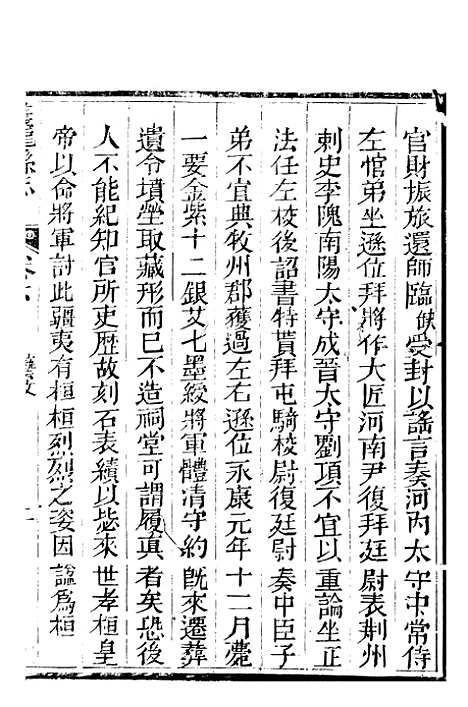 官財振旅還師臨當受封以謠言奏河內太守中常侍
左悺弟坐遜位拜將作大匠河南尹復拜廷尉表荆州
刺史李隗南陽太守成晉太守劉項不宜以重論坐正
法任左校後詔書特貰拜屯騎校尉復廷尉奏中臣子
弟不宜典牧州郡獲過左右遜位永康元年十二月薨
一要金紫十二銀艾七墨綬將軍體清守約旣來遷葬
遺令墳塋取藏形而已不造祠堂可謂履真者矣恐後
人不能紀知官所更歷故刻石表績以毖來世孝桓皇
帝以命將軍討此彊夷有桓桓烈烈之姿因諡爲桓